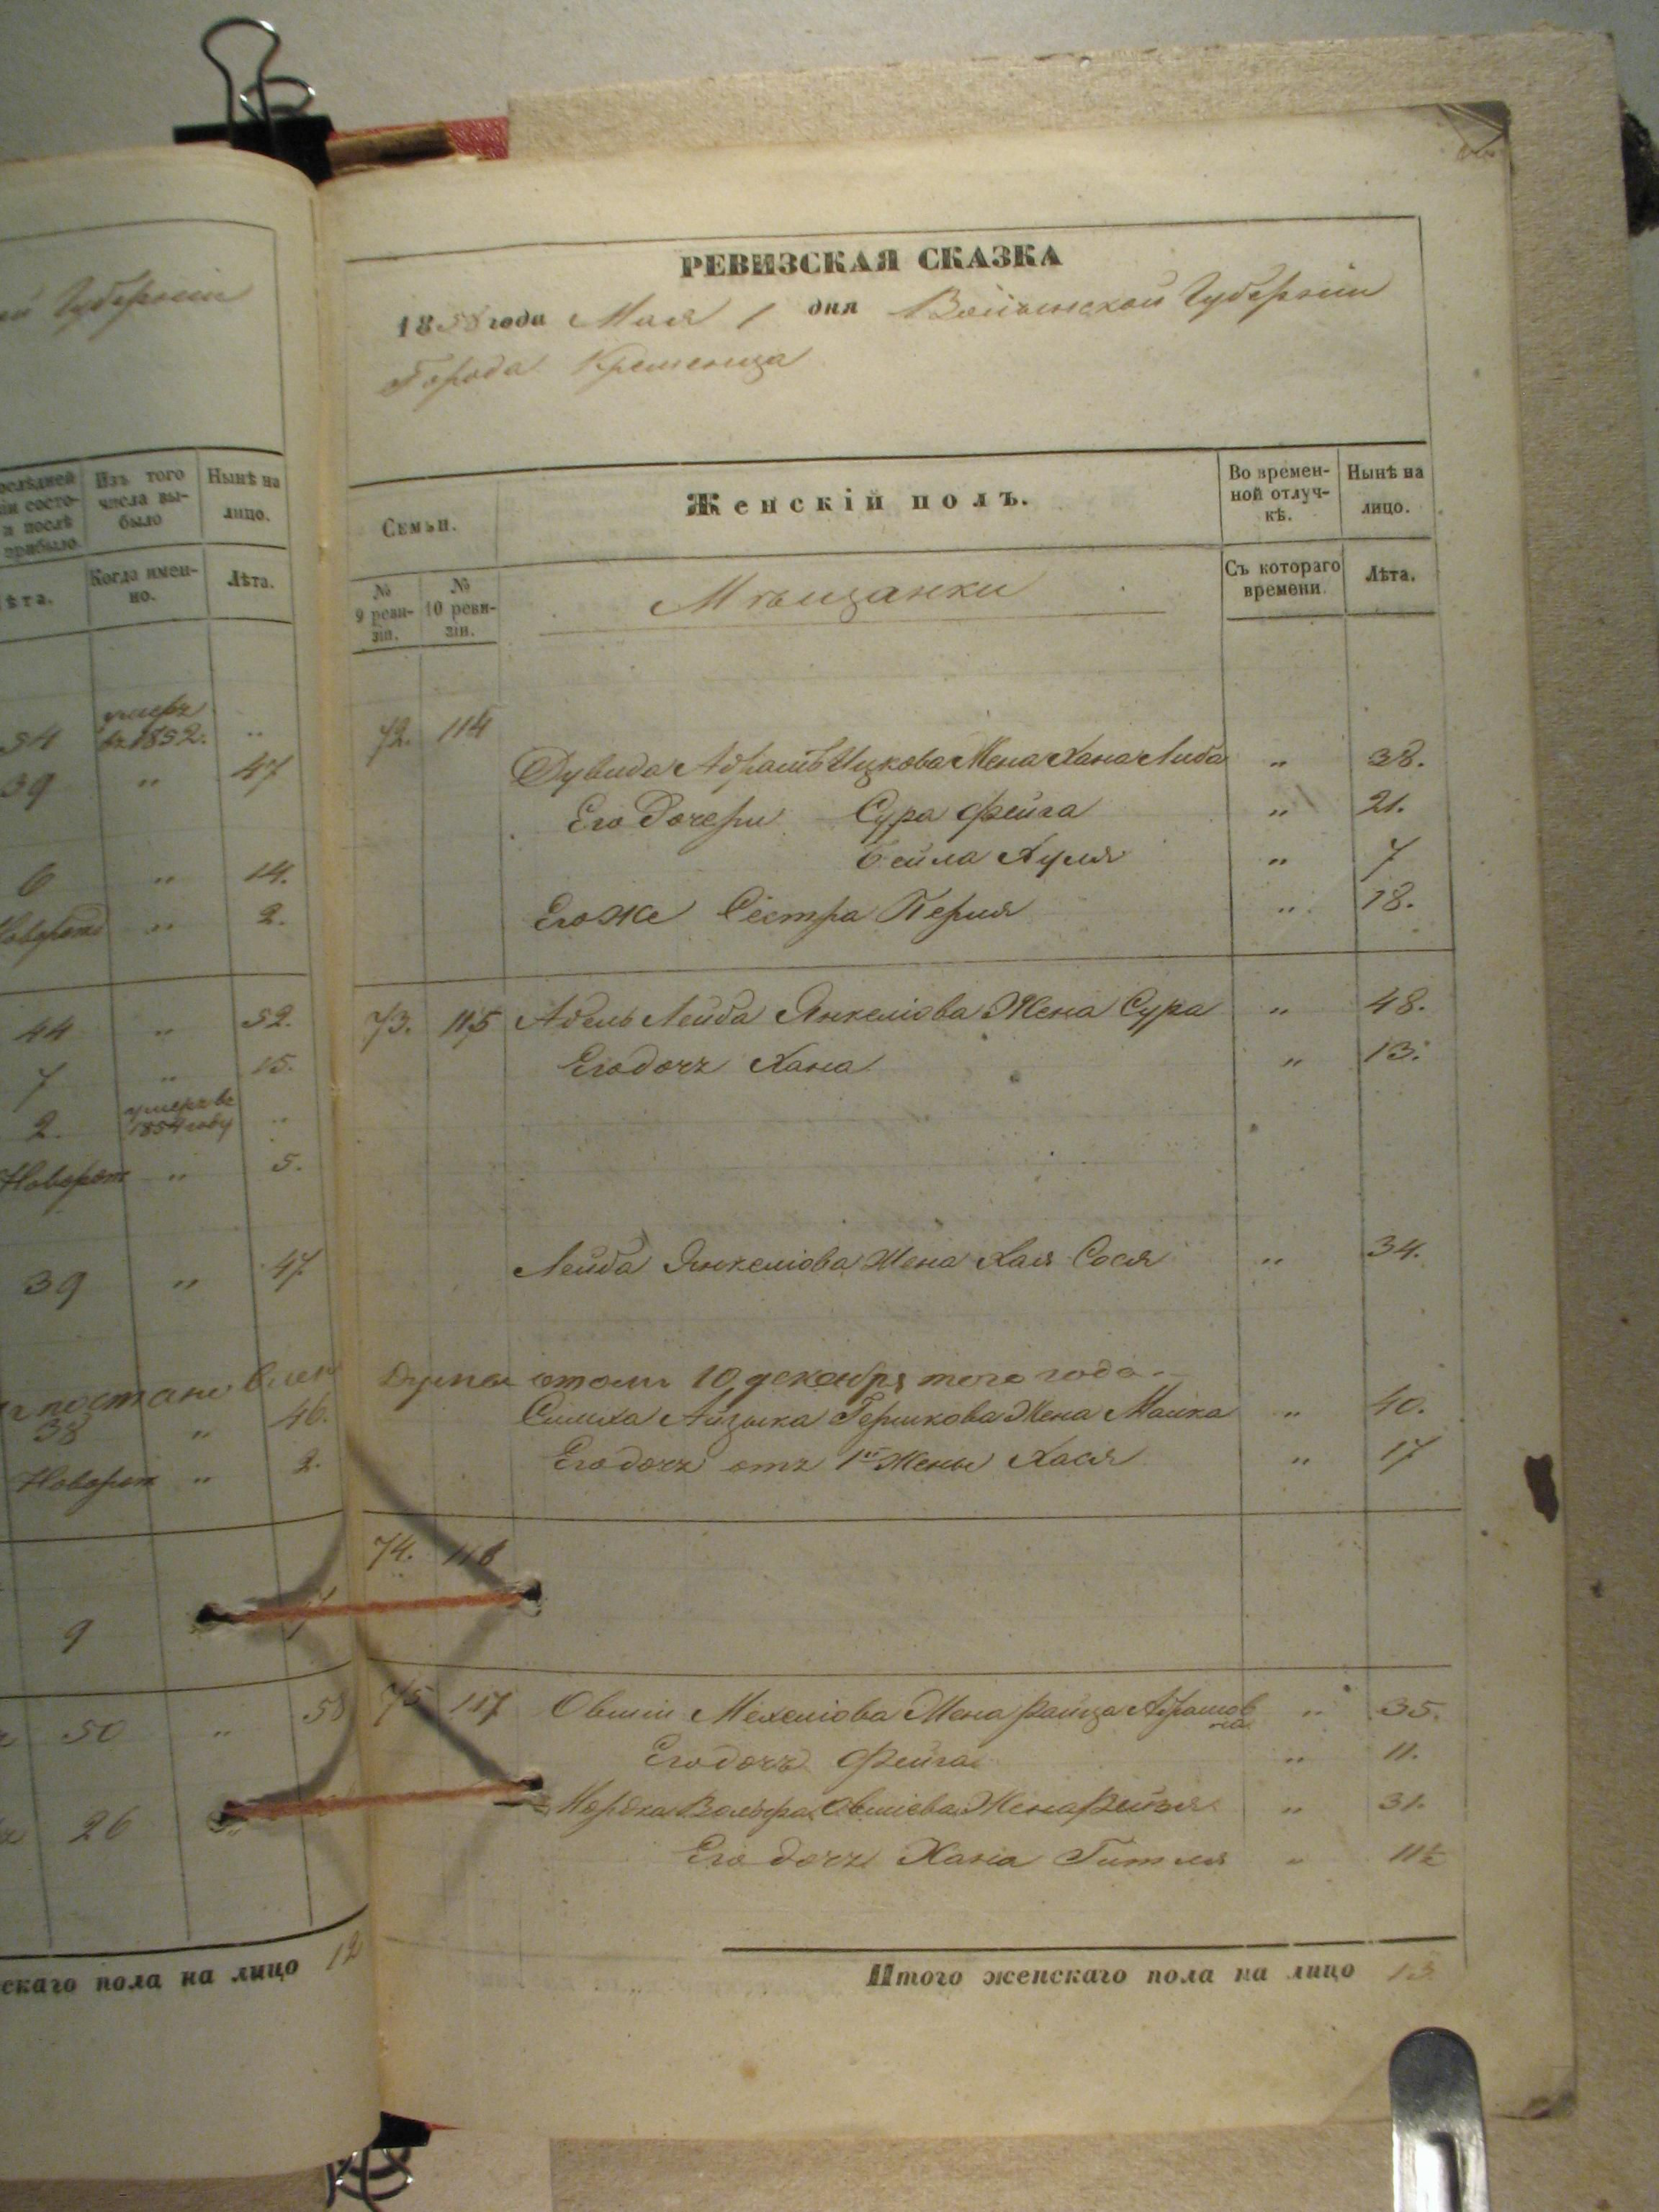 ей Губерніи
Изъ того числа вы-было
Нынѣ на лицо.
Когда имен-но.
Лѣта.
54 умеръ въ 1852. "
39 " 47
6 " 14.
" 2.
44 " 52.
7 " 15.
2. умеръ въ 1854 году "
Новорож " 5.
39 " 47
38 " 46.
Новорож " 2.
9
50 " 58
26
скаго пола на лицо 12
РЕВИЗСКАЯ СКАЗКА
1858 года Мая 1 дня Волынской Губерніи
Города Кременца
Семьи.
Женскій полъ.
Во времен-ной отлуч-кѣ.
Нынѣ на лицо.
№ 9 реви-зіи.
№ 10 реви-зіи.
Мѣщанки
Съ котораго времени.
Лѣта.
72. 114
Дувида Абрамъ Ицкова Жена Хана Либа " 38.
Его Дочери Сура Фейга " 21.
Бейла Хуля " 7
Его же Сестра Перля " 18.
73. 115 Адель Лейба Янкеліова Жена Сура " 48.
Его дочь Хана " 13.
Лейба Янкеліова Жена Хая Сося " 34.
Думы отом 10 декабря того года.
Симха Айзыка Гершкова Жена Малка " 40.
Его дочь отъ 1й Жены Хася " 17
74. 116
75 117 Овшіи Мехеліова Жена Райца Абрамовна " 35.
Его дочь Фейга " 11.
Мордка Вольфа Овшіева Жена Рейзя " 31.
Его дочь Хана Гитля " 11½
Итого женскаго пола на лицо 13